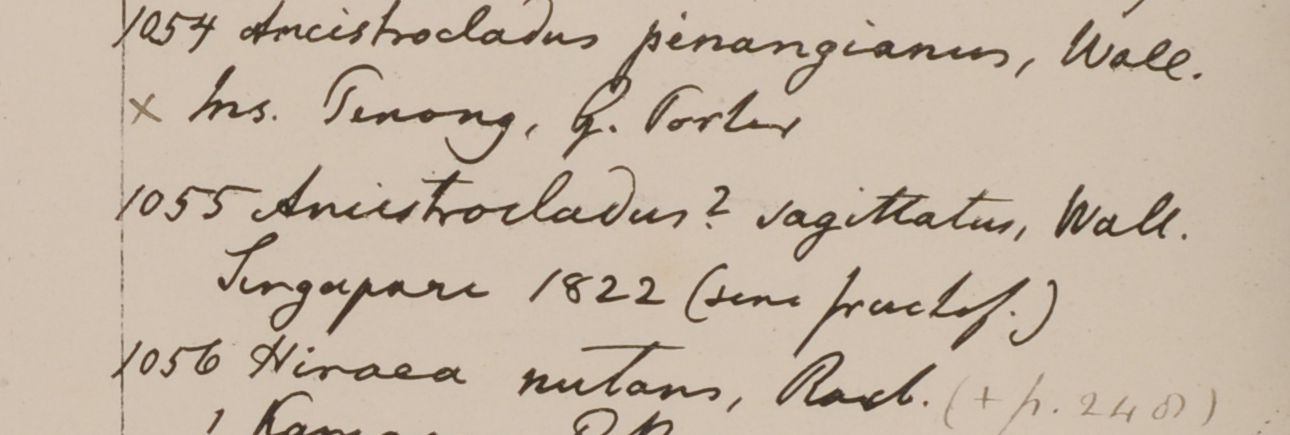 1054 Ancistrocladus pinangianus, Wall.
x Ins. Penang, G. Porter
1055 Ancistrocladus? sagittatus, Wall.
Singapore 1822 (sine fructif.)
1056 Hiraea nutans, Roxb. (+ p. 248)